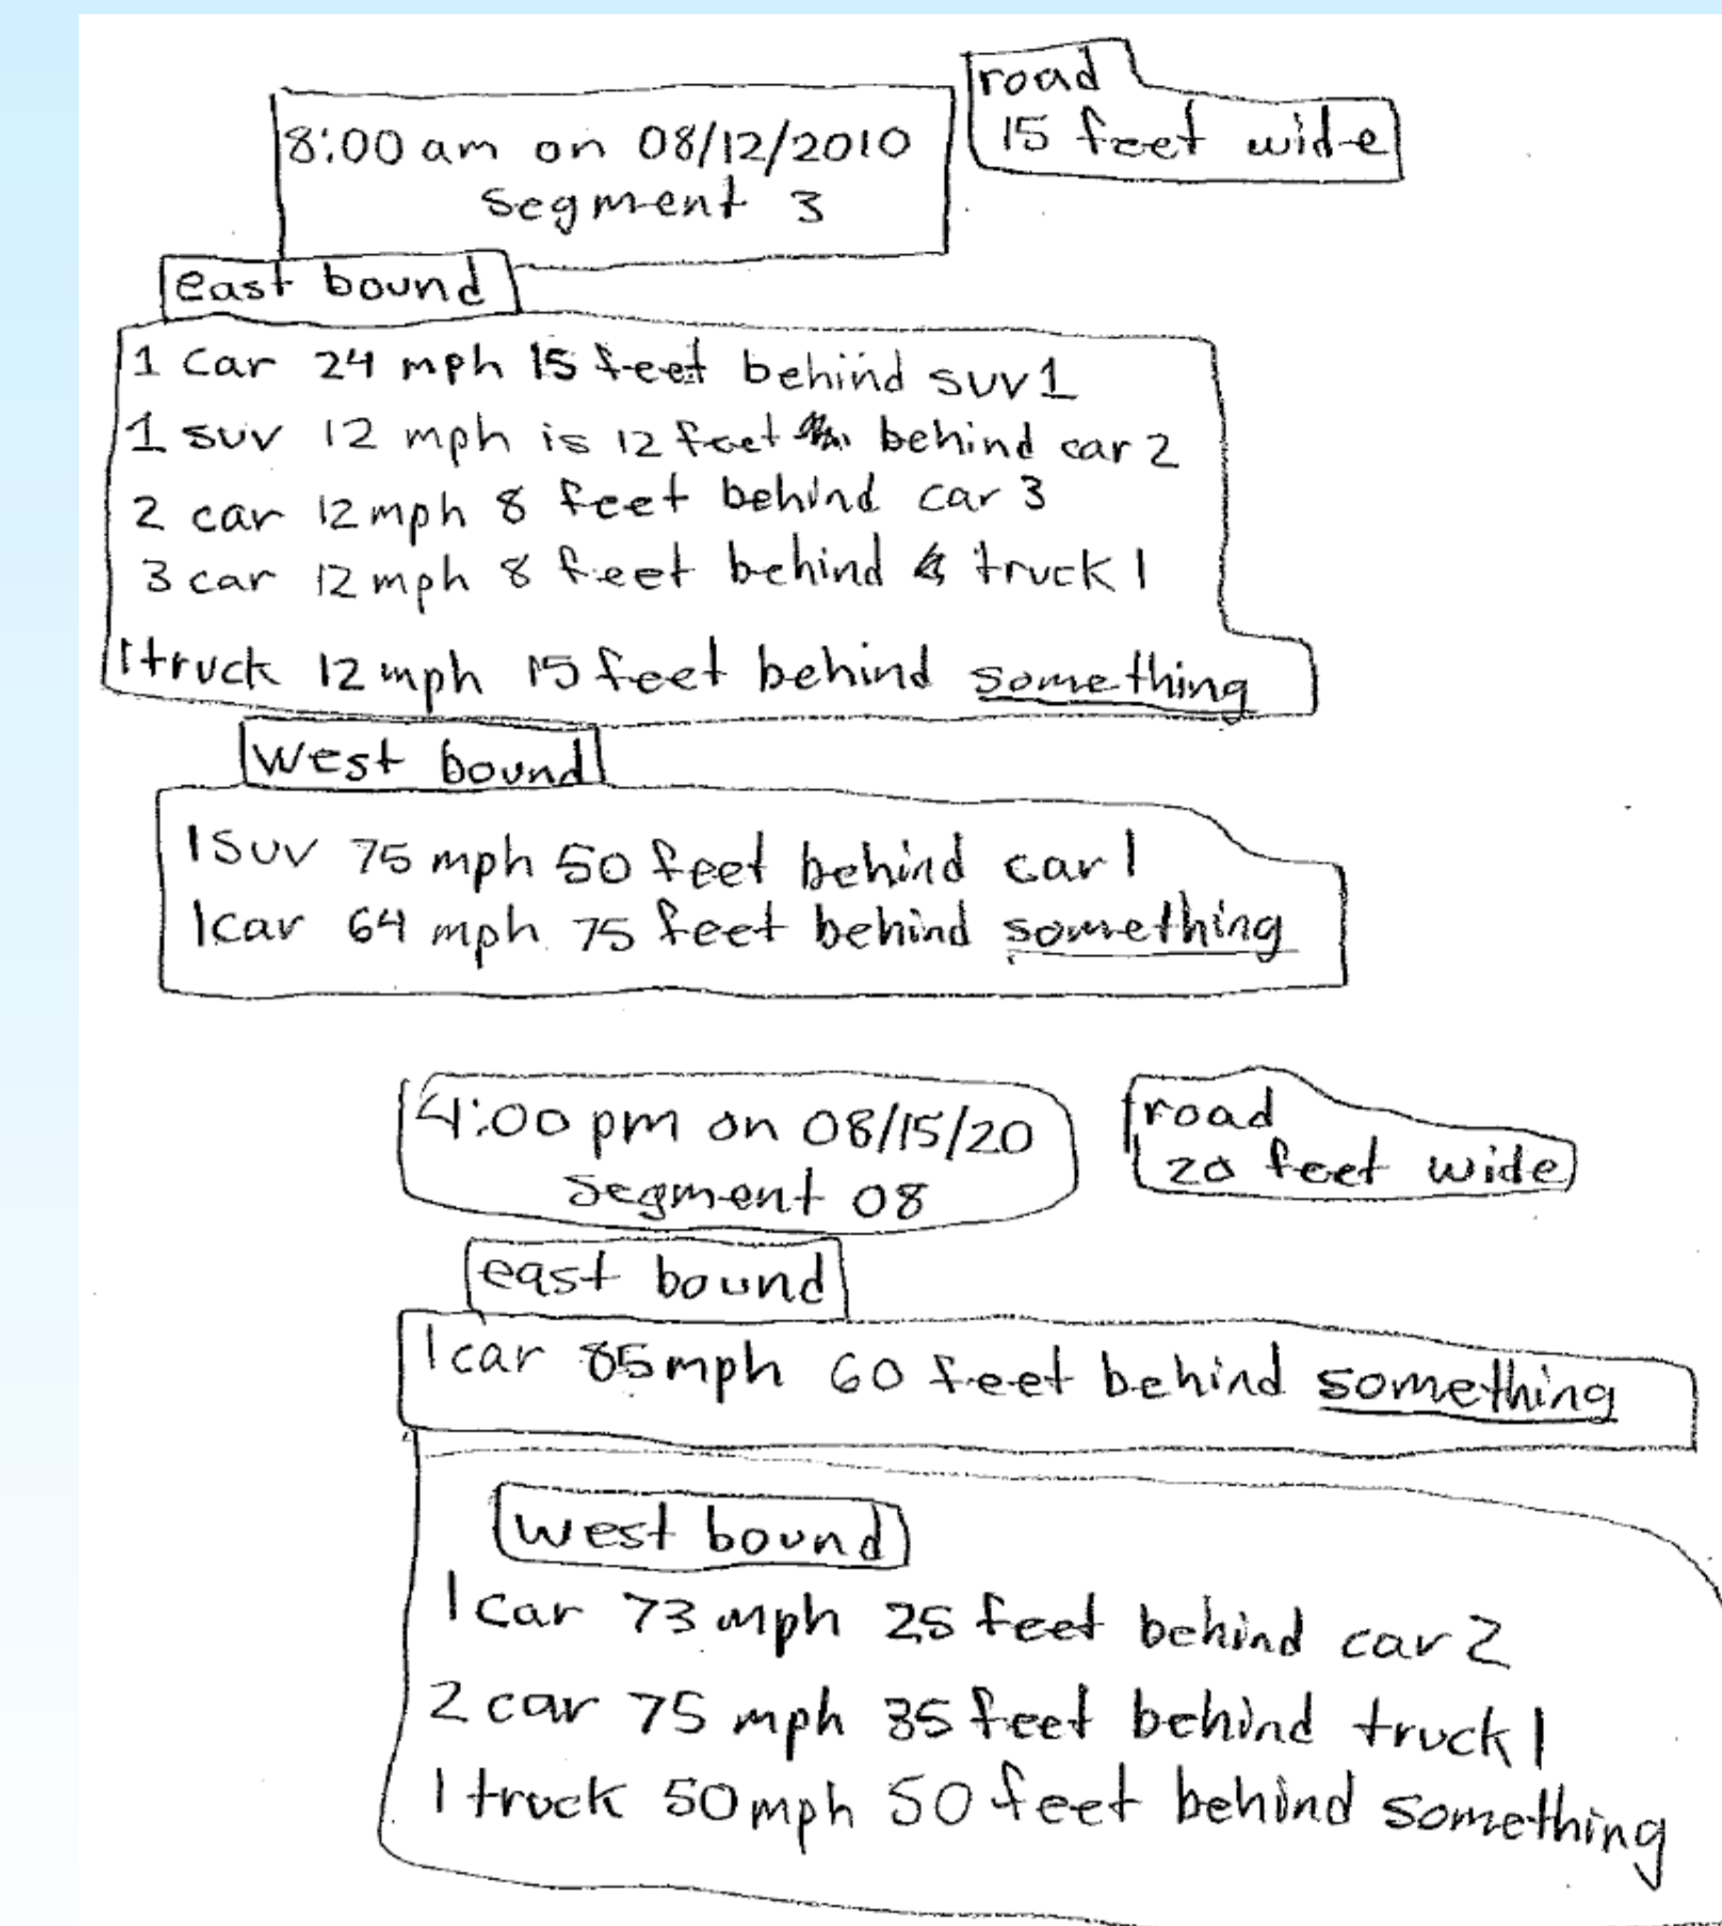 road
15 feet wide
8:00 am on 08/12/2010
segment 3
east bound
1 car 24 mph 15 feet behind suv 1
1 suv 12 mph is 12 feet behind car 2
2 car 12 mph 8 feet behind car 3
3 car 12 mph 8 feet behind truck 1
1 truck 12 mph 15 feet behind something
west bound
1 suv 75 mph 50 feet behind car 1
1 car 64 mph 75 feet behind something
4:00 pm on 08/15/20
segment 08
road
20 feet wide
east bound
1 car 85 mph 60 feet behind something
west bound
1 car 73 mph 25 feet behind car 2
2 car 75 mph 35 feet behind truck 1
1 truck 50 mph 50 feet behind something